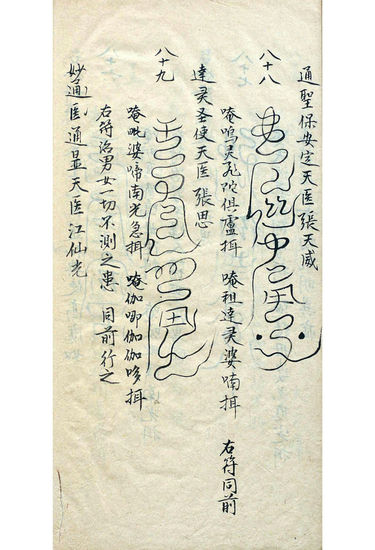 通聖保安定天医張天威
八十八
唵嗚灵孔碇俱盧揖 唵祖達灵婆喃揖 右符同前
達灵圣使天医張思
八十九
唵毗婆啼南光急揖 唵伽唧伽伽哆揖
右符治男女一切不測之患 同前行之
妙通医通显天医江仙光